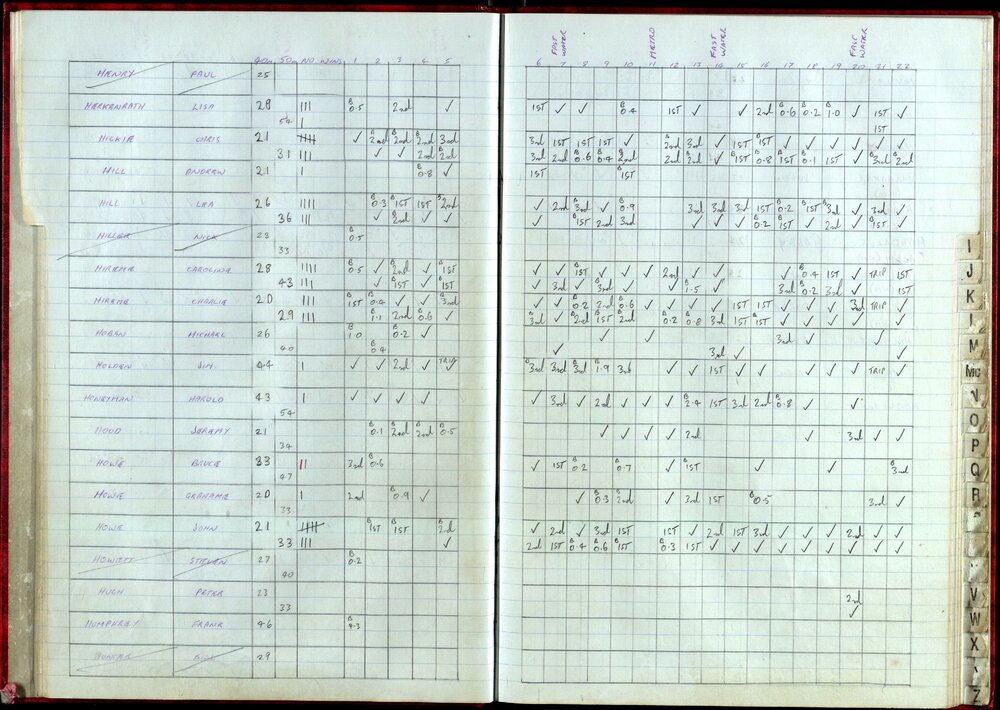 FAST WATER METRO FAST WATER FAST WATER
40m 50m NO WINS 1 2 3 4 5 6 7 8 9 10 11 12 13 14 15 16 17 18 19 20 21 22
HENRY PAUL 25
HERKENRATH LISA 28 III B 0.5 2nd ✓ 1ST ✓ ✓ B 0.4 1ST ✓ ✓ 2nd B 0.6 B 0.2 B 1.0 ✓ 1ST ✓
54 I 1ST
HICKIE CHRIS 21 ✓ B 2nd B 2nd B 2nd 3rd 3rd 1ST 1ST 1ST ✓ 2nd 3rd ✓ 1ST B 1ST ✓ ✓ ✓ ✓ ✓ ✓
31 III ✓ ✓ 2nd B 2nd 3rd 2nd B 0.6 B 0.4 B 2nd 2nd B 2nd ✓ B 1ST B 0.8 B 1ST B 0.1 1ST ✓ B 3rd B 2nd
HILL ANDREW 21 I B 0.8 ✓ 1ST B 1ST
HILL LEA 26 IIII B 0.3 B 1ST 1ST B 2nd ✓ 2nd B 3rd ✓ B 0.9 3rd 3rd 3rd 1ST B 0.2 B 1ST B 3rd ✓ 3rd ✓
36 III ✓ B 2nd ✓ ✓ ✓ B 1ST 2nd 3rd ✓ ✓ ✓ B 0.2 B 1ST ✓ 2nd ✓ B 1ST ✓
HILLIER NICK 23 B 0.5
33
HIREME CAROLINE 28 IIII B 0.5 ✓ B 2nd ✓ B 1ST ✓ ✓ B 1ST ✓ ✓ ✓ 2nd ✓ ✓ ✓ B 0.4 1ST ✓ TRIP 1ST
43 III ✓ B 1ST ✓ B 1ST ✓ 3rd ✓ B 3rd ✓ ✓ B 1.5 ✓ 3rd B 0.2 3rd ✓ 1ST
HIREME CHARLIE 20 III B 1ST B 0.4 ✓ ✓ B 3rd ✓ ✓ B 0.2 2nd B 0.6 ✓ ✓ ✓ ✓ 1ST 1ST ✓ ✓ ✓ 3rd TRIP ✓
29 IIII B 1.1 2nd B 0.6 ✓ B 3rd ✓ B 2nd B 1ST B 2nd B 0.2 B 0.8 3rd 1ST B 1ST ✓ ✓ ✓ ✓ ✓
HOBAN MICHAEL 26 B 1.0 B 0.2 ✓ ✓ ✓ 3rd ✓ ✓
40 B 0.4 ✓ 3rd ✓ ✓
HOLDEN JIM 44 I ✓ ✓ 2nd ✓ TRIP ✓ B 3rd 3rd B 3rd B 1.9 3rd ✓ ✓ 1ST ✓ ✓ ✓ ✓ ✓ TRIP ✓
HONEYMAN HAROLD 43 I ✓ ✓ ✓ ✓ ✓ 3rd ✓ 2nd ✓ ✓ ✓ B 2.4 1ST 3rd 2nd B 0.8 ✓ ✓
54
HOOD JEREMY 21 B 0.1 B 2nd B 2nd B 0.5 ✓ ✓ ✓ ✓ 2nd ✓ 3rd ✓ ✓
34
HOWE BRUCE 33 II 3rd B 0.6 ✓ 1ST B 0.2 B 0.7 ✓ B 1ST ✓ ✓ B 3rd
47
HOWIE GRAHAME 20 I 2nd B 0.9 ✓ ✓ B 0.3 B 2nd ✓ 3rd 1ST B 0.5 3rd ✓
33
HOWE JOHN 21 B 1ST B 1ST B 2nd ✓ 2nd ✓ 3rd 1ST 1ST ✓ 2nd 1ST 3rd ✓ ✓ ✓ 2nd ✓ ✓
33 III ✓ 2nd 1ST B 0.4 B 0.6 B 1ST B 0.3 1ST ✓ ✓ ✓ ✓ ✓ ✓ ✓ ✓ ✓
HOWITT STEVEN 27 B 0.2
40
HUGH PETER 23 2nd
33 ✓
HUMPHREY FRANK 46 B 4.3
HUNTER 29
I
J
K
L
M
Mc
N
O
P
Q
R
V
W
X
Z